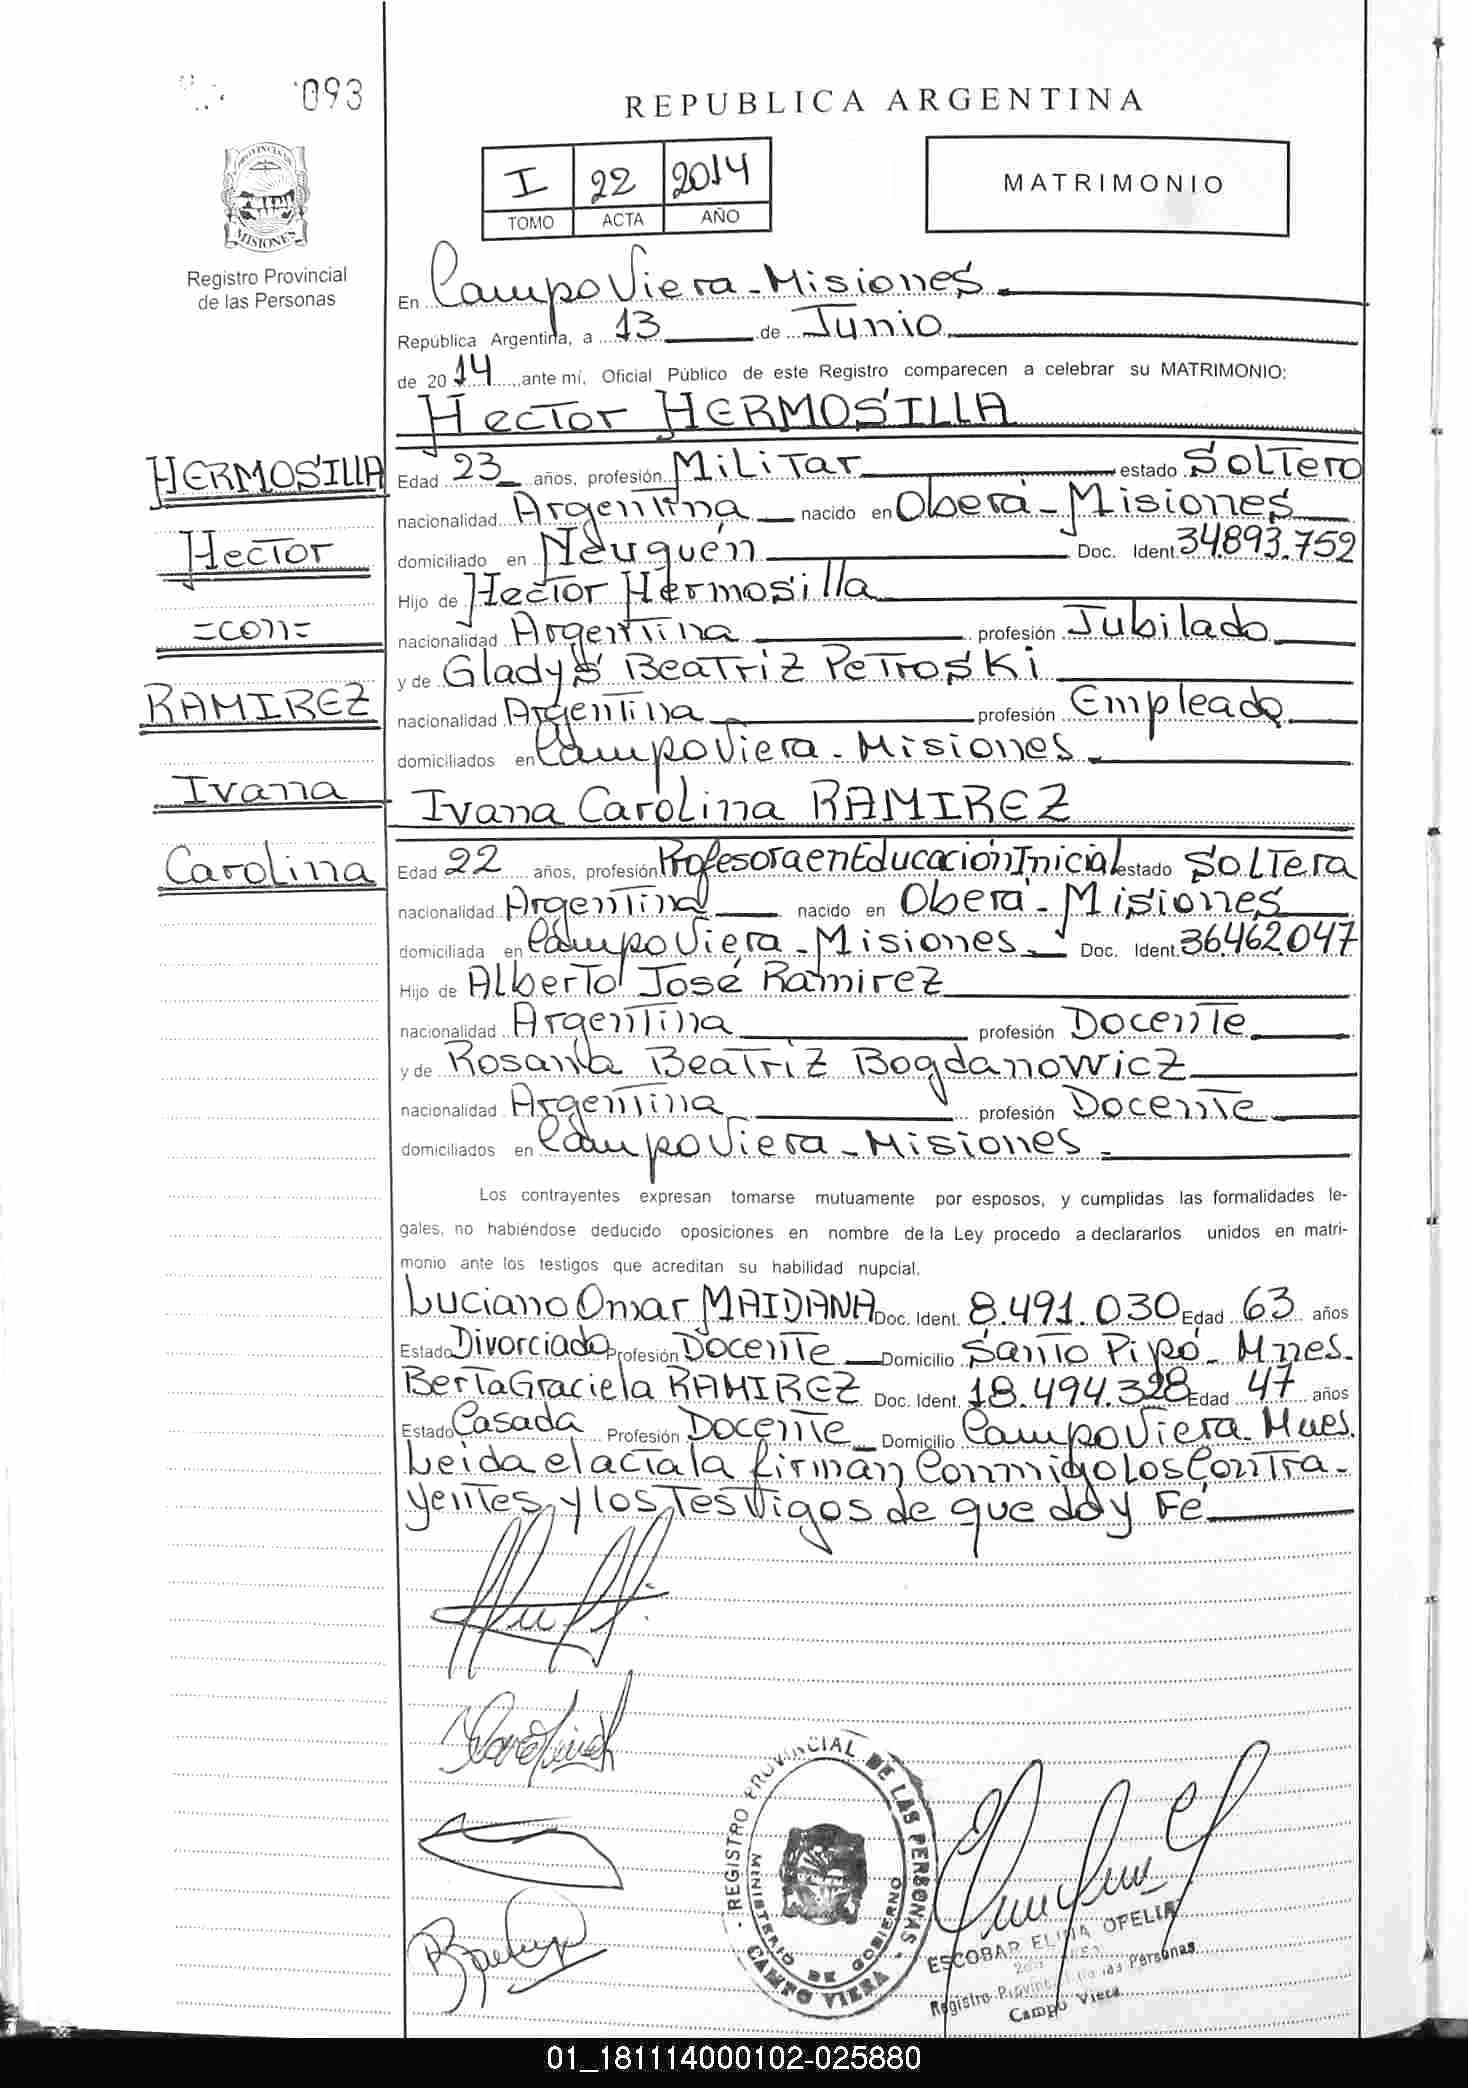 093
REPUBLICA ARGENTINA
I 22 2014
TOMO ACTA AÑO
MATRIMONIO
PROVINCIA DE
MISIONES
Registro Provincial
de las Personas
En Campo Viera - Misiones
República Argentina, a 13 de Junio
de 2014 ante mí, Oficial Público de este Registro comparecen a celebrar su MATRIMONIO:
Hector HERMOSILLA
HERMOSILLA
Hector
=con=
RAMIREZ
Ivana
Carolina
Edad 23 años, profesión Militar estado Soltero
nacionalidad Argentina nacido en Oberá - Misiones
domiciliado en Neuquén Doc. Ident. 34.893.752
Hijo de Hector Hermosilla
nacionalidad Argentina profesión Jubilado
y de Gladys Beatriz Petroski
nacionalidad Argentina profesión Empleada
domiciliados en Campo Viera - Misiones
Ivana Carolina RAMIREZ
Edad 22 años, profesión Profesora en Educación Inicial estado Soltera
nacionalidad Argentina nacido en Oberá - Misiones
domiciliada en Campo Viera - Misiones Doc. Ident. 36.462.047
Hijo de Alberto José Ramirez
nacionalidad Argentina profesión Docente
y de Rosanna Beatriz Bogdanowicz
nacionalidad Argentina profesión Docente
domiciliados en Campo Viera - Misiones
Los contrayentes expresan tomarse mutuamente por esposos, y cumplidas las formalidades le-
gales, no habiéndose deducido oposiciones en nombre de la Ley procedo a declararlos unidos en matri-
monio ante los testigos que acreditan su habilidad nupcial.
Luciano Omar MAIDANA Doc. Ident. 8.491.030 Edad 63 años
Estado Divorciado Profesión Docente Domicilio Santo Pipó - Mnes.
Berta Graciela RAMIREZ Doc. Ident. 18.494.328 Edad 47 años
Estado Casada Profesión Docente Domicilio Campo Viera - Mnes.
Leida el acta la firman Conmigo Los Contra-
yentes y los Testigos de que doy Fé
REGISTRO PROVINCIAL DE LAS PERSONAS
MINISTERIO DE GOBIERNO
CAMPO VIERA
ESCOBAR OFELIA
Registro Provincial de las Personas
Campo Viera
01_181114000102-025880